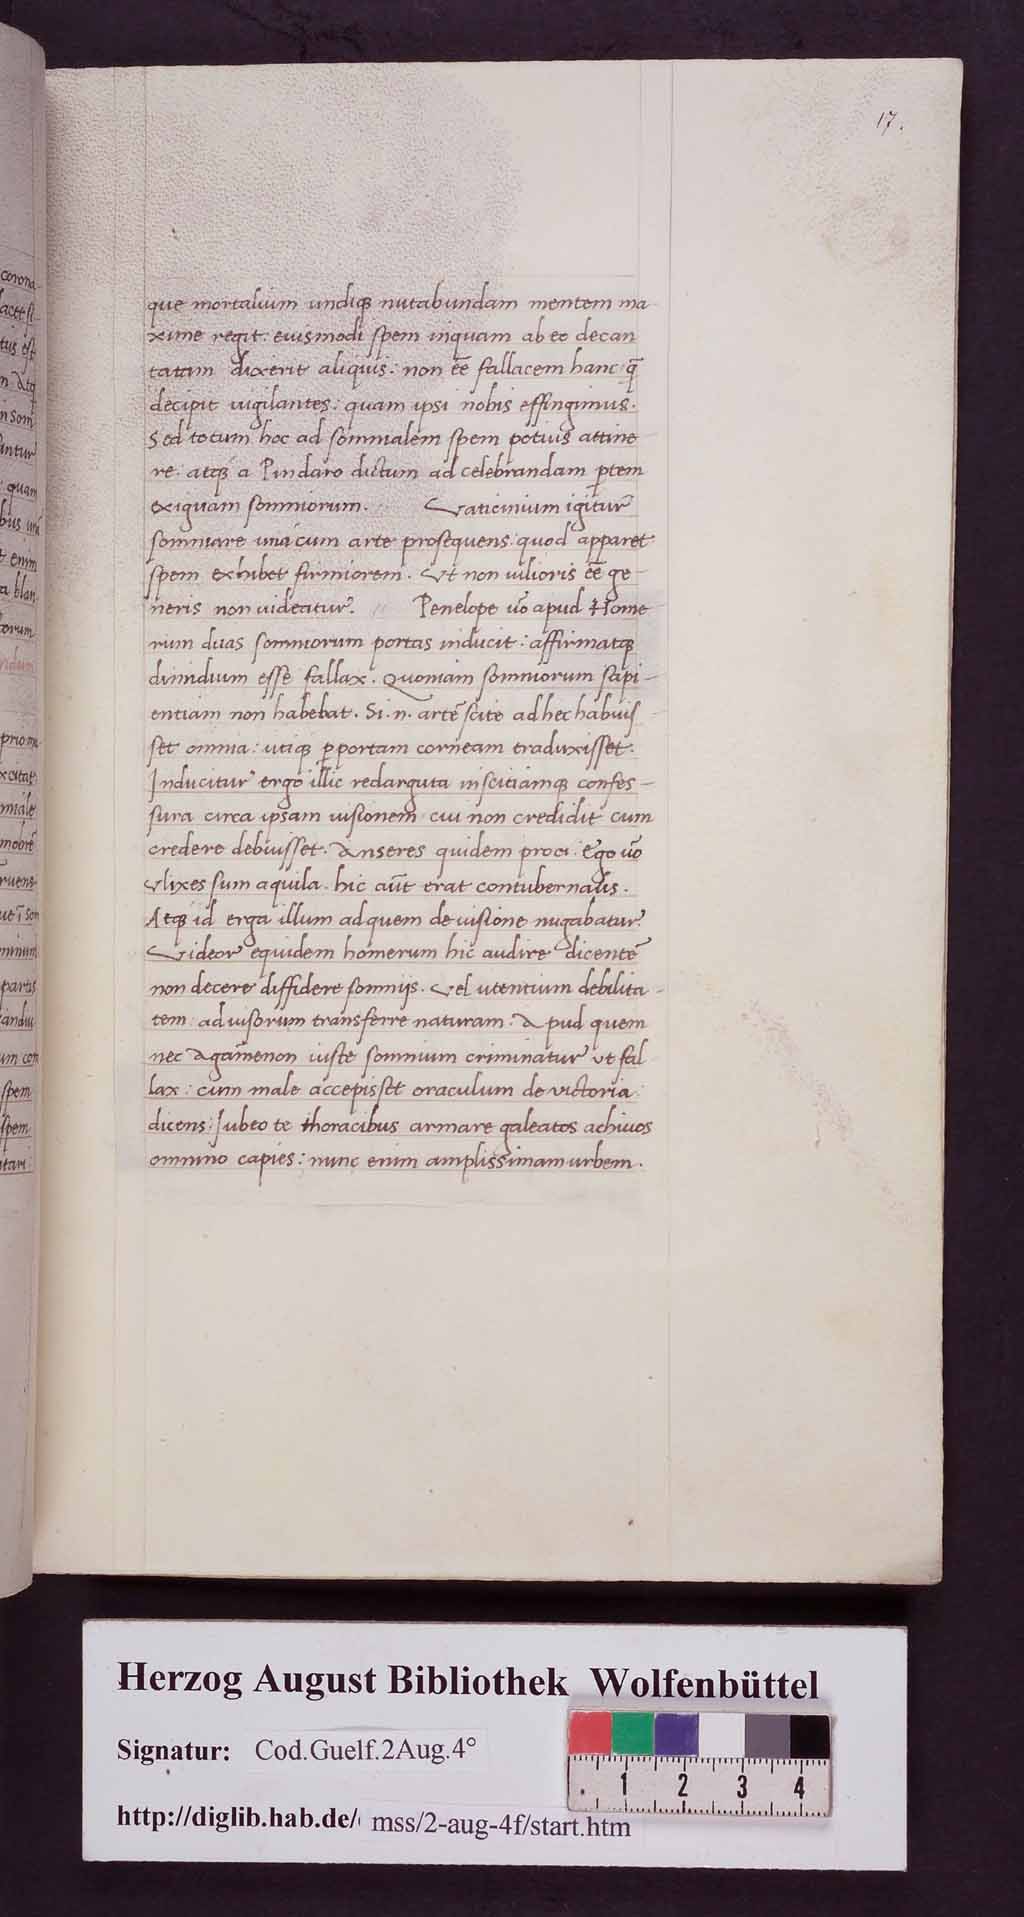 17.
que mortalium undiqȝ nutabundam mentem ma
xime regit: eiusmodi spem inquam ab eo decan
tatam dixerit aliquis: non eē fallacem hanc q̄
decipit uigilantes: quam ipsi nobis effingimus.
Sed totum hoc ad somnialem spem potius attine
re: atqȝ a Pindaro dictum ad celebrandam ꝑtem
exiguam somniorum. Vaticinium igitur
somniare una cum arte prosequens: quod apparet
spem exhibet firmiorem. Vt non uilioris eē ge-
neris non uideatur. Penelope uō apud Home
rum duas somniorum portas inducit: affirmatqȝ
dimidium esse fallax. Quoniam somniorum sapi-
entiam non habebat. Si .n. artē scite ad hec habuis
set omnia: utiqȝ ꝑ portam corneam traduxisset.
Inducitur ergo illic redarguta inscitiamqȝ confes-
sura circa ipsam uisionem cui non credidit cum
credere debuisset. Anseres quidem proci. Ego uō
Vlixes sum aquila. hic aūt erat contubernalis.
Atqȝ id erga illum ad quem de uisione nugabatur.
Videor equidem homerum hic audire dicentē
non decere diffidere somnijs. Vel utentium debilita-
tem: ad uisorum transferre naturam. Apud quem
nec Agamēnon iuste somnium criminatur ut fal
lax: cum male accepisset oraculum de victoria:
dicens: Iubeo te thoracibus armare galeatos achiuos
omnino capies: nunc enim amplissimam urbem.
corona-
tus est
insom
antur
quam
t enim
a blan
minum
partis
um con
spem
spem
tari:
Herzog August Bibliothek Wolfenbüttel
Signatur: Cod.Guelf.2Aug.4°
http://diglib.hab.de/ mss/2-aug-4f/start.htm
1 2 3 4